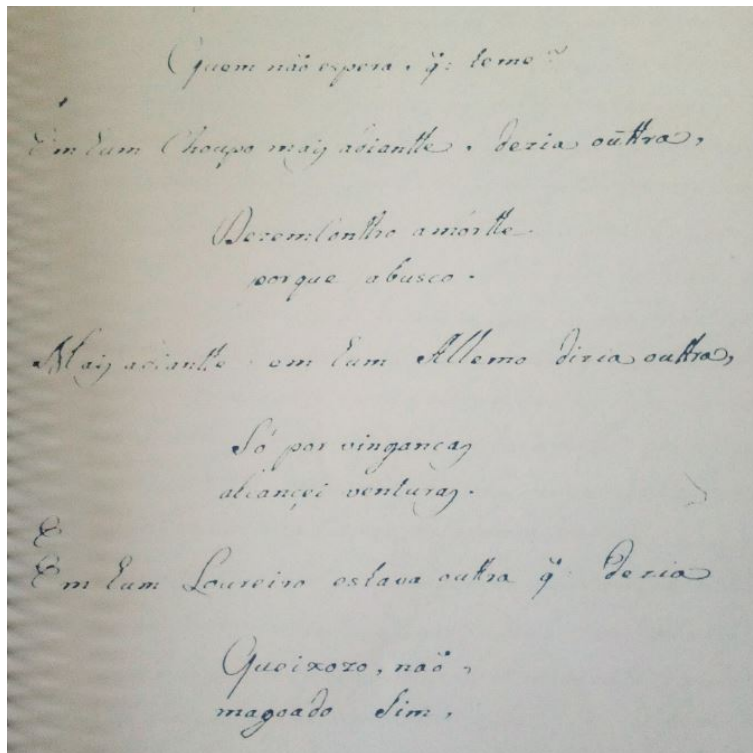 Quem não espera, q̃: teme?
Em hum Choupo mais adiantte, dezia outtra,
Dezemconttro amórtte
porque abusco.
Mais adiantte em hum Allemo dizia outtra,
Só por vingancas
alcancei venturas.
E
Em hum Loureiro estava outtra q̃ dezia
Queixozo, naõ,
magoado Sim,